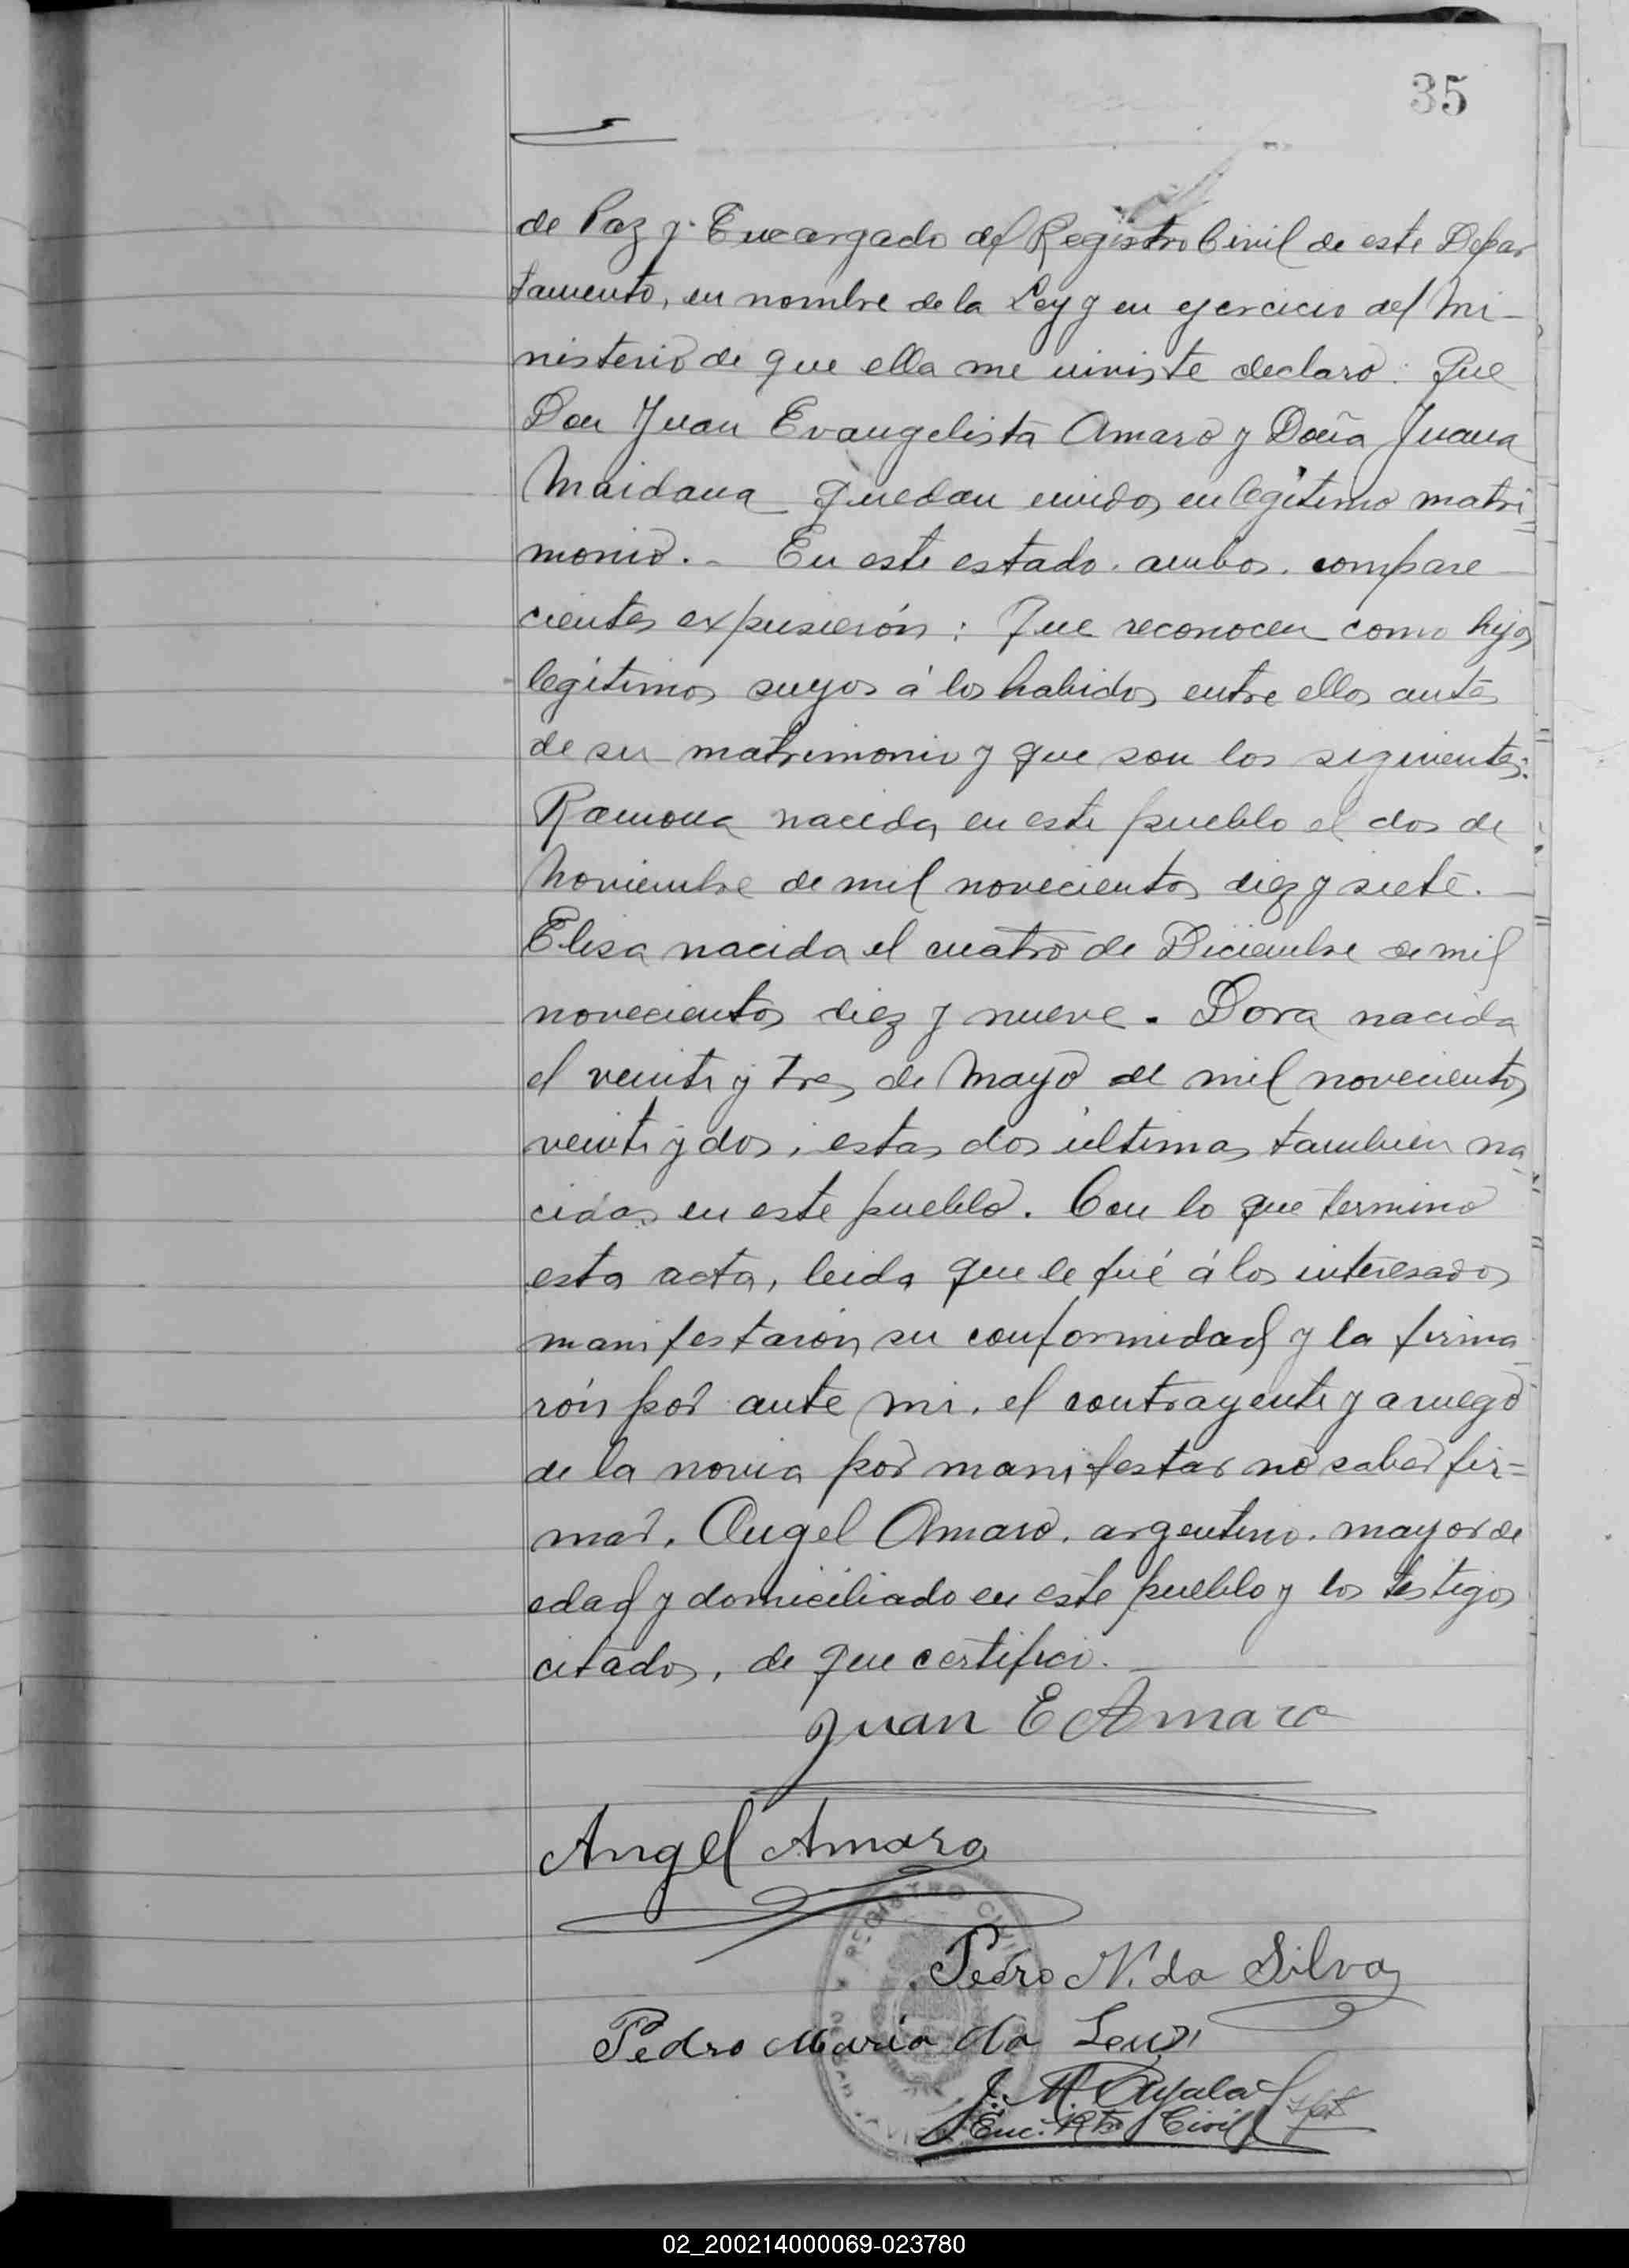 35
de Paz y Encargado del Registro Civil de este Depar
tamento, en nombre de la Ley y en ejercicio del Mi-
nisterio de que ella me inviste declaro: Que
Don Juan Evangelista Amaro y Doña Juana
Maidana quedan unidos en legítimo matri=
monio.- En este estado. ambos. compare
cientes expusierón: Que reconocen como hijos
legítimos suyos á los habidos entre ellos antes
de su matrimonio y que son los siguientes:
Ramona nacida en este pueblo el dos de
Noviembre de mil novecientos diez y siete.-
Elisa nacida el cuatro de Diciembre de mil
novecientos diez y nueve. Dora nacida
el veinte y tres de Mayo de mil novecientos
veinte y dos, estas dos últimas tambien na
cidas en este pueblo. Con lo que termino
esta acta, leida que le fué á los interesados
manifestarón su conformidad y la firma
rón por ante mi. el contrayente y a ruego
de la novia por manifestar no saber fir=
mar. Angel Amaro. argentino. mayor de
edad y domiciliado en este pueblo y los testigos
citados, de que certifico.-
Juan E Amaro
Angel Amaro
REGISTRO CIVIL
Pedro N. da Silva
Pedro Maria da
J. M. Ayala
Enc. Rto Civil
02_200214000069-023780